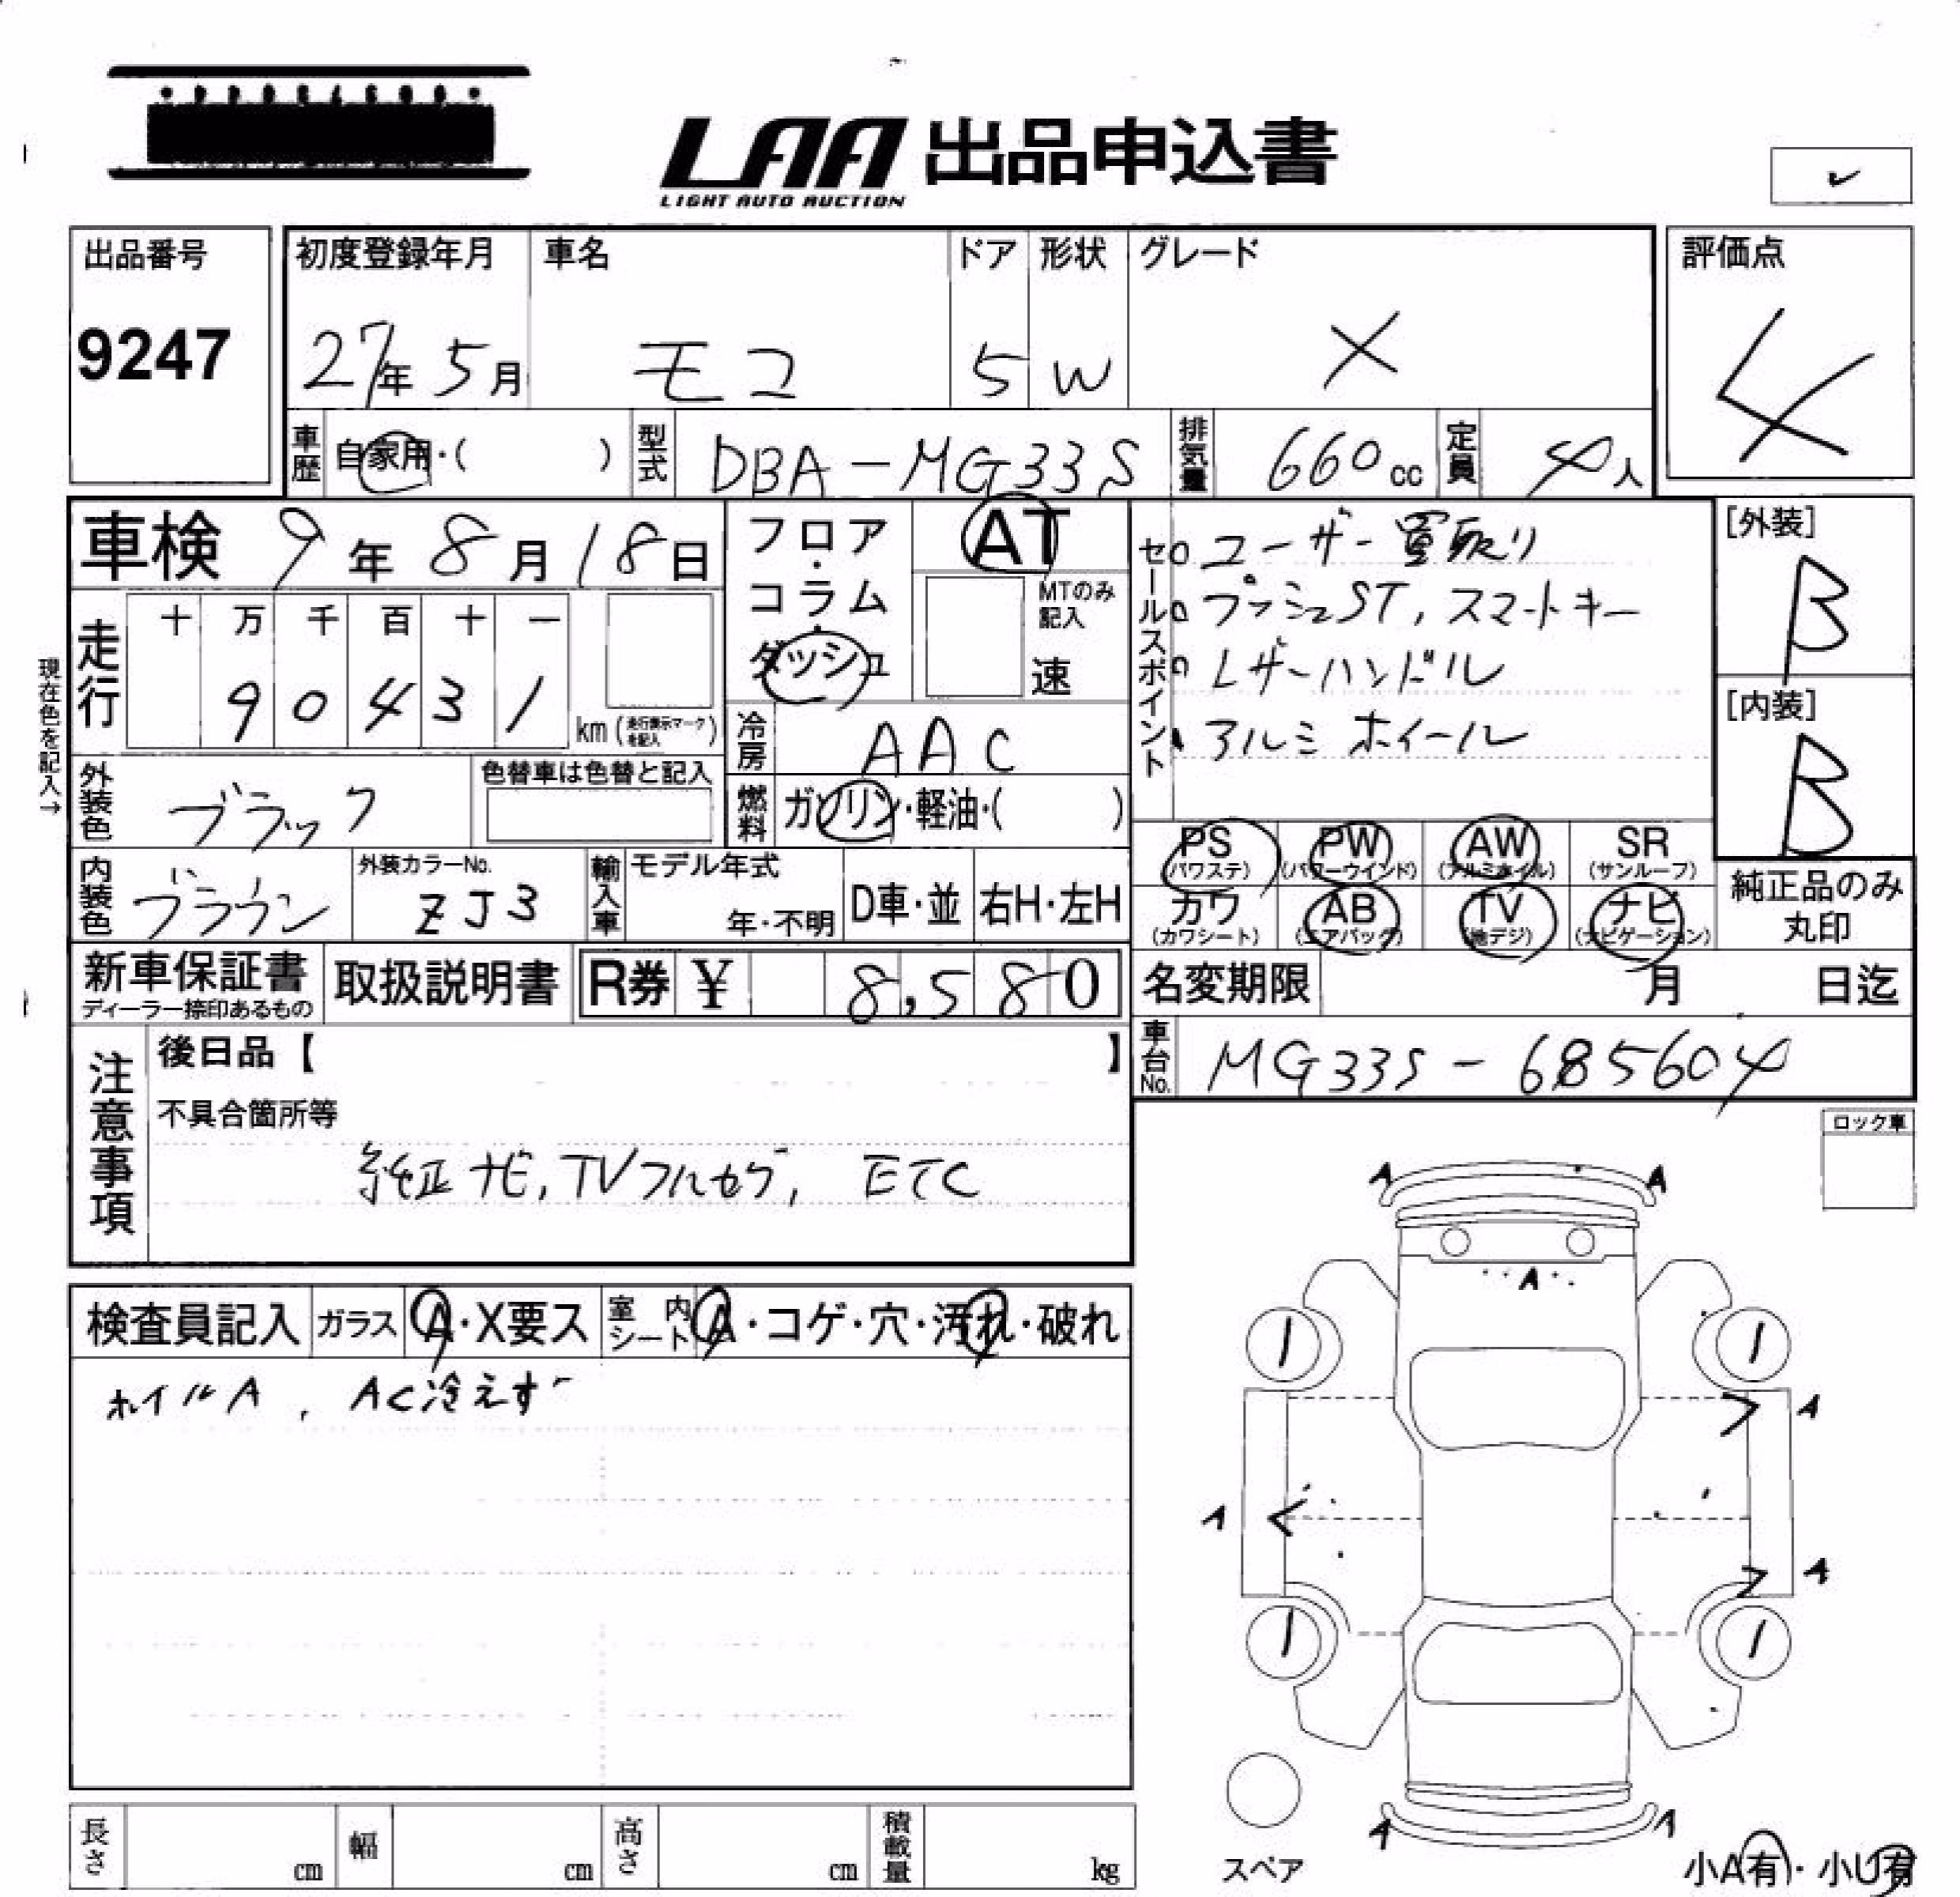 LAA 出品申込書
LIGHT AUTO AUCTION
出品番号
9247
初度登録年月
27年 5月
車名
モコ
ドア
5
形状
W
グレード
X
評価点
4
車歴 自家用・( )
型式 DBA-MG33S
排気量 660cc
定員 4人
車検 9年 8月 18日
走行 十 万 千 百 十 一
9 0 4 3 1 km (走行表示マークを記入)
現在色を記入→
外装色 ブラック
色替車は色替と記入
内装色 ブラウン
外装カラーNo.
ZJ3
輸入車 モデル年式
年・不明
D車・並
右H・左H
フロア・コラム・ダッシュ
AT
MTのみ記入
速
冷房 AAC
燃料 ガソリン・軽油・( )
セールスポイント
ユーザー買取り
プッシュST, スマートキー
レザーハンドル
アルミホイール
[外装]
B
[内装]
B
PS (パワステ)
PW (パワーウインド)
AW (アルミホイル)
SR (サンルーフ)
カワ (カワシート)
AB (エアバッグ)
TV (地デジ)
ナビ (ナビゲーション)
純正品のみ丸印
新車保証書
ディーラー捺印あるもの
取扱説明書
R券 ¥ 8,580
名変期限 月 日迄
車台No. MG33S-685604
注意事項
後日品【 】
不具合箇所等
純正ナビ, TVフルセグ, ETC
ロック車
検査員記入
ガラス A・X要ス
室内シート A・コゲ・穴・汚れ・破れ
ホイルA, AC冷えず
A A
A
A
A
A
A A
スペア
小A有・小U有
長さ cm
幅 cm
高さ cm
積載量 kg